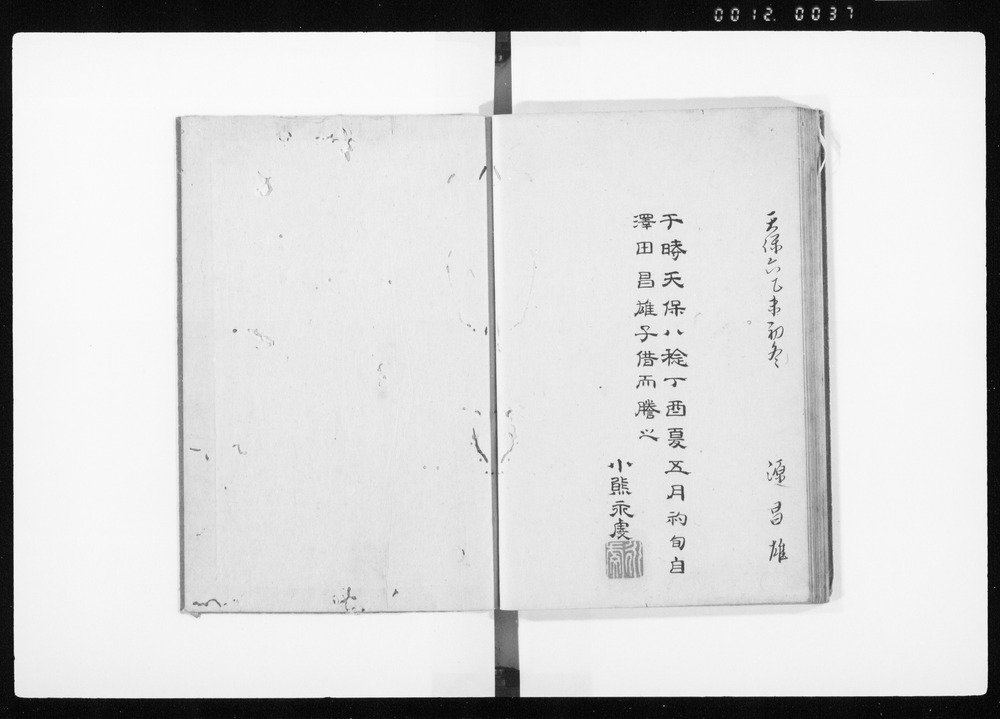 0012.0037
天保六乙未初冬
源昌雄
于時天保八稔丁酉夏五月初旬自
澤田昌雄子借而謄之
小熊永處